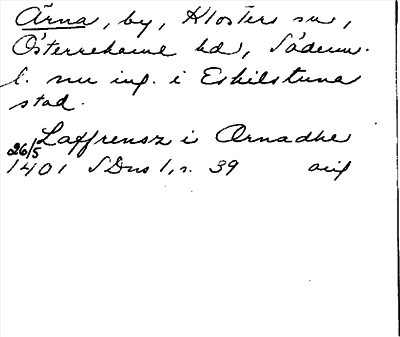 Ärna, by, Klosters sn,
Österrekarne hd, Söderm.
l. nu ing. i Eskilstuna
stad.
Laffrensz i Arnadhe
26/5
1401 SDns 1, s. 39 orig